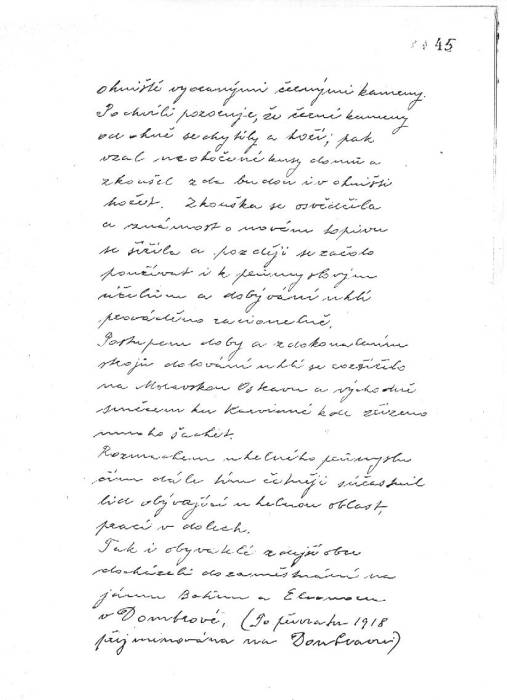 45
ohniště vyvanými černými kameny.
Po chvíli pozoruje, že černé kameny
od ohně se chytily a hoří; pak
vzal neohořené kusy domů a
zkoušel zda budou i v ohništi
hořet. Zkouška se osvědčila
a známost o novém topivu
se šířila a později se začalo
používat i k průmyslovým
účelům a dobývání uhlí
prováděno racionelně.
Postupem doby a zdokonalením
strojů dolování uhlí se rozšířilo
na Moravskou Ostravu a východně
směrem ku Karvinné kde zřízeno
mnoho šachet.
Rozmachem uhelného průmyslu
čím dále tím četněji súčastnil
lid obývající uhelnou oblast,
prací v dolech.
Tak i obyvatelé zdejší obce
docházeli do zaměstnání na
jámu Betinu a Eleonoru
v Dombrové, (Po převratu 1918
přejmenována na Doubravu)